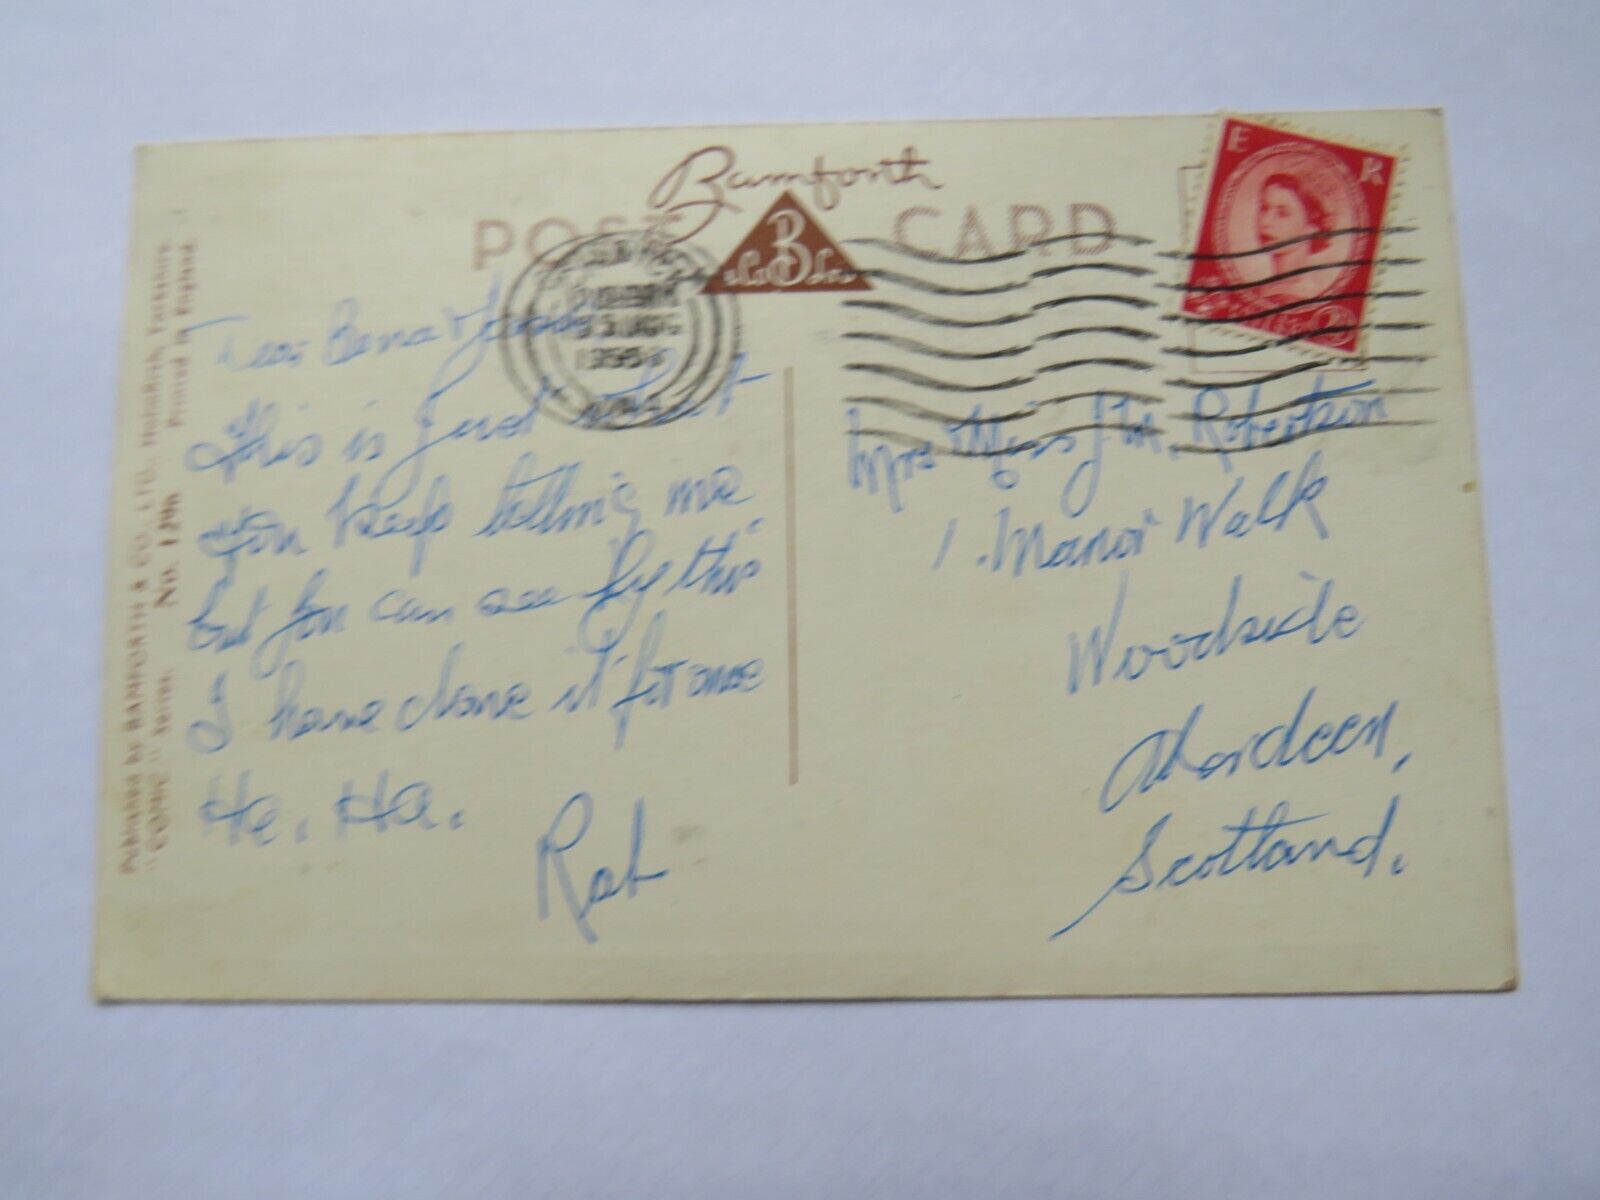 Bamforth
POST CARD
E R
1956
Dear Bena &
This is just what
you keep telling me
but you can see by this
I have done it for once
Ha. Ha.
Rob
Mrs & Miss J M. Robertson
1. Manor Walk
Woodside
Aberdeen,
Scotland.
Published by BAMFORTH & CO., LTD., Holmfirth, Yorkshire.
"COMIC" Series. No. 1296 Printed in England.